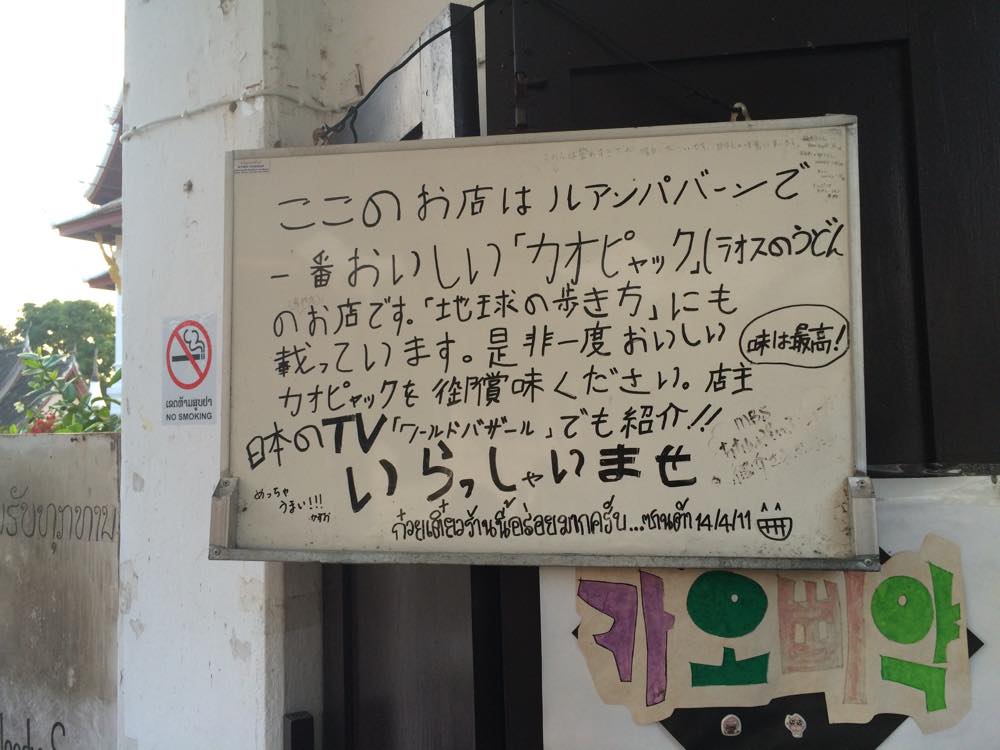 ここのお店はルアンパバーンで
一番おいしい「カオピャック」(ラオスのうどん
のお店です。「地球の歩き方」にも
載っています。是非一度おいしい
味は最高!
カオピャックを御賞味ください。店主
日本のTV「ワールドバザール」でも紹介!!
いらっしゃいませ
めっちゃ
うまい!!!
ก๋วยเตี๋ยวร้านนี้อร่อยมากครับ...ซานต้า 14/4/11
ເຂດຫ້າມສູບຢາ
NO SMOKING
MBS
카오삐약